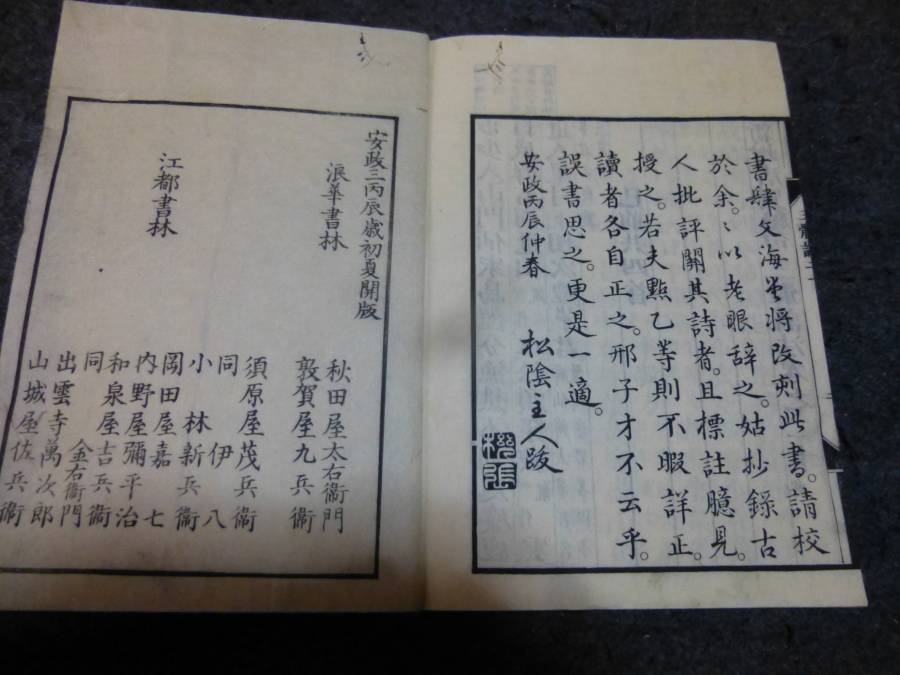 書肆文海堂將改刻此書。請校
於余。〻以老眼辞之。姑抄錄古
人批評關其詩者。且標註臆見。
授之。若夫點乙等則不暇詳正。
讀者各自正之。邢子才不云乎。
誤書思之。更是一適。
安政丙辰仲春
松陰主人跋
安政三丙辰歳初夏開版
浪華書林
秋田屋太右衞門
敦賀屋九兵衞
江都書林
須原屋茂兵衞
同 伊八
小林新兵衞
岡田屋嘉七
内野屋彌平治
和泉屋吉兵衞
同 金右衞門
出雲寺萬次郎
山城屋佐兵衞